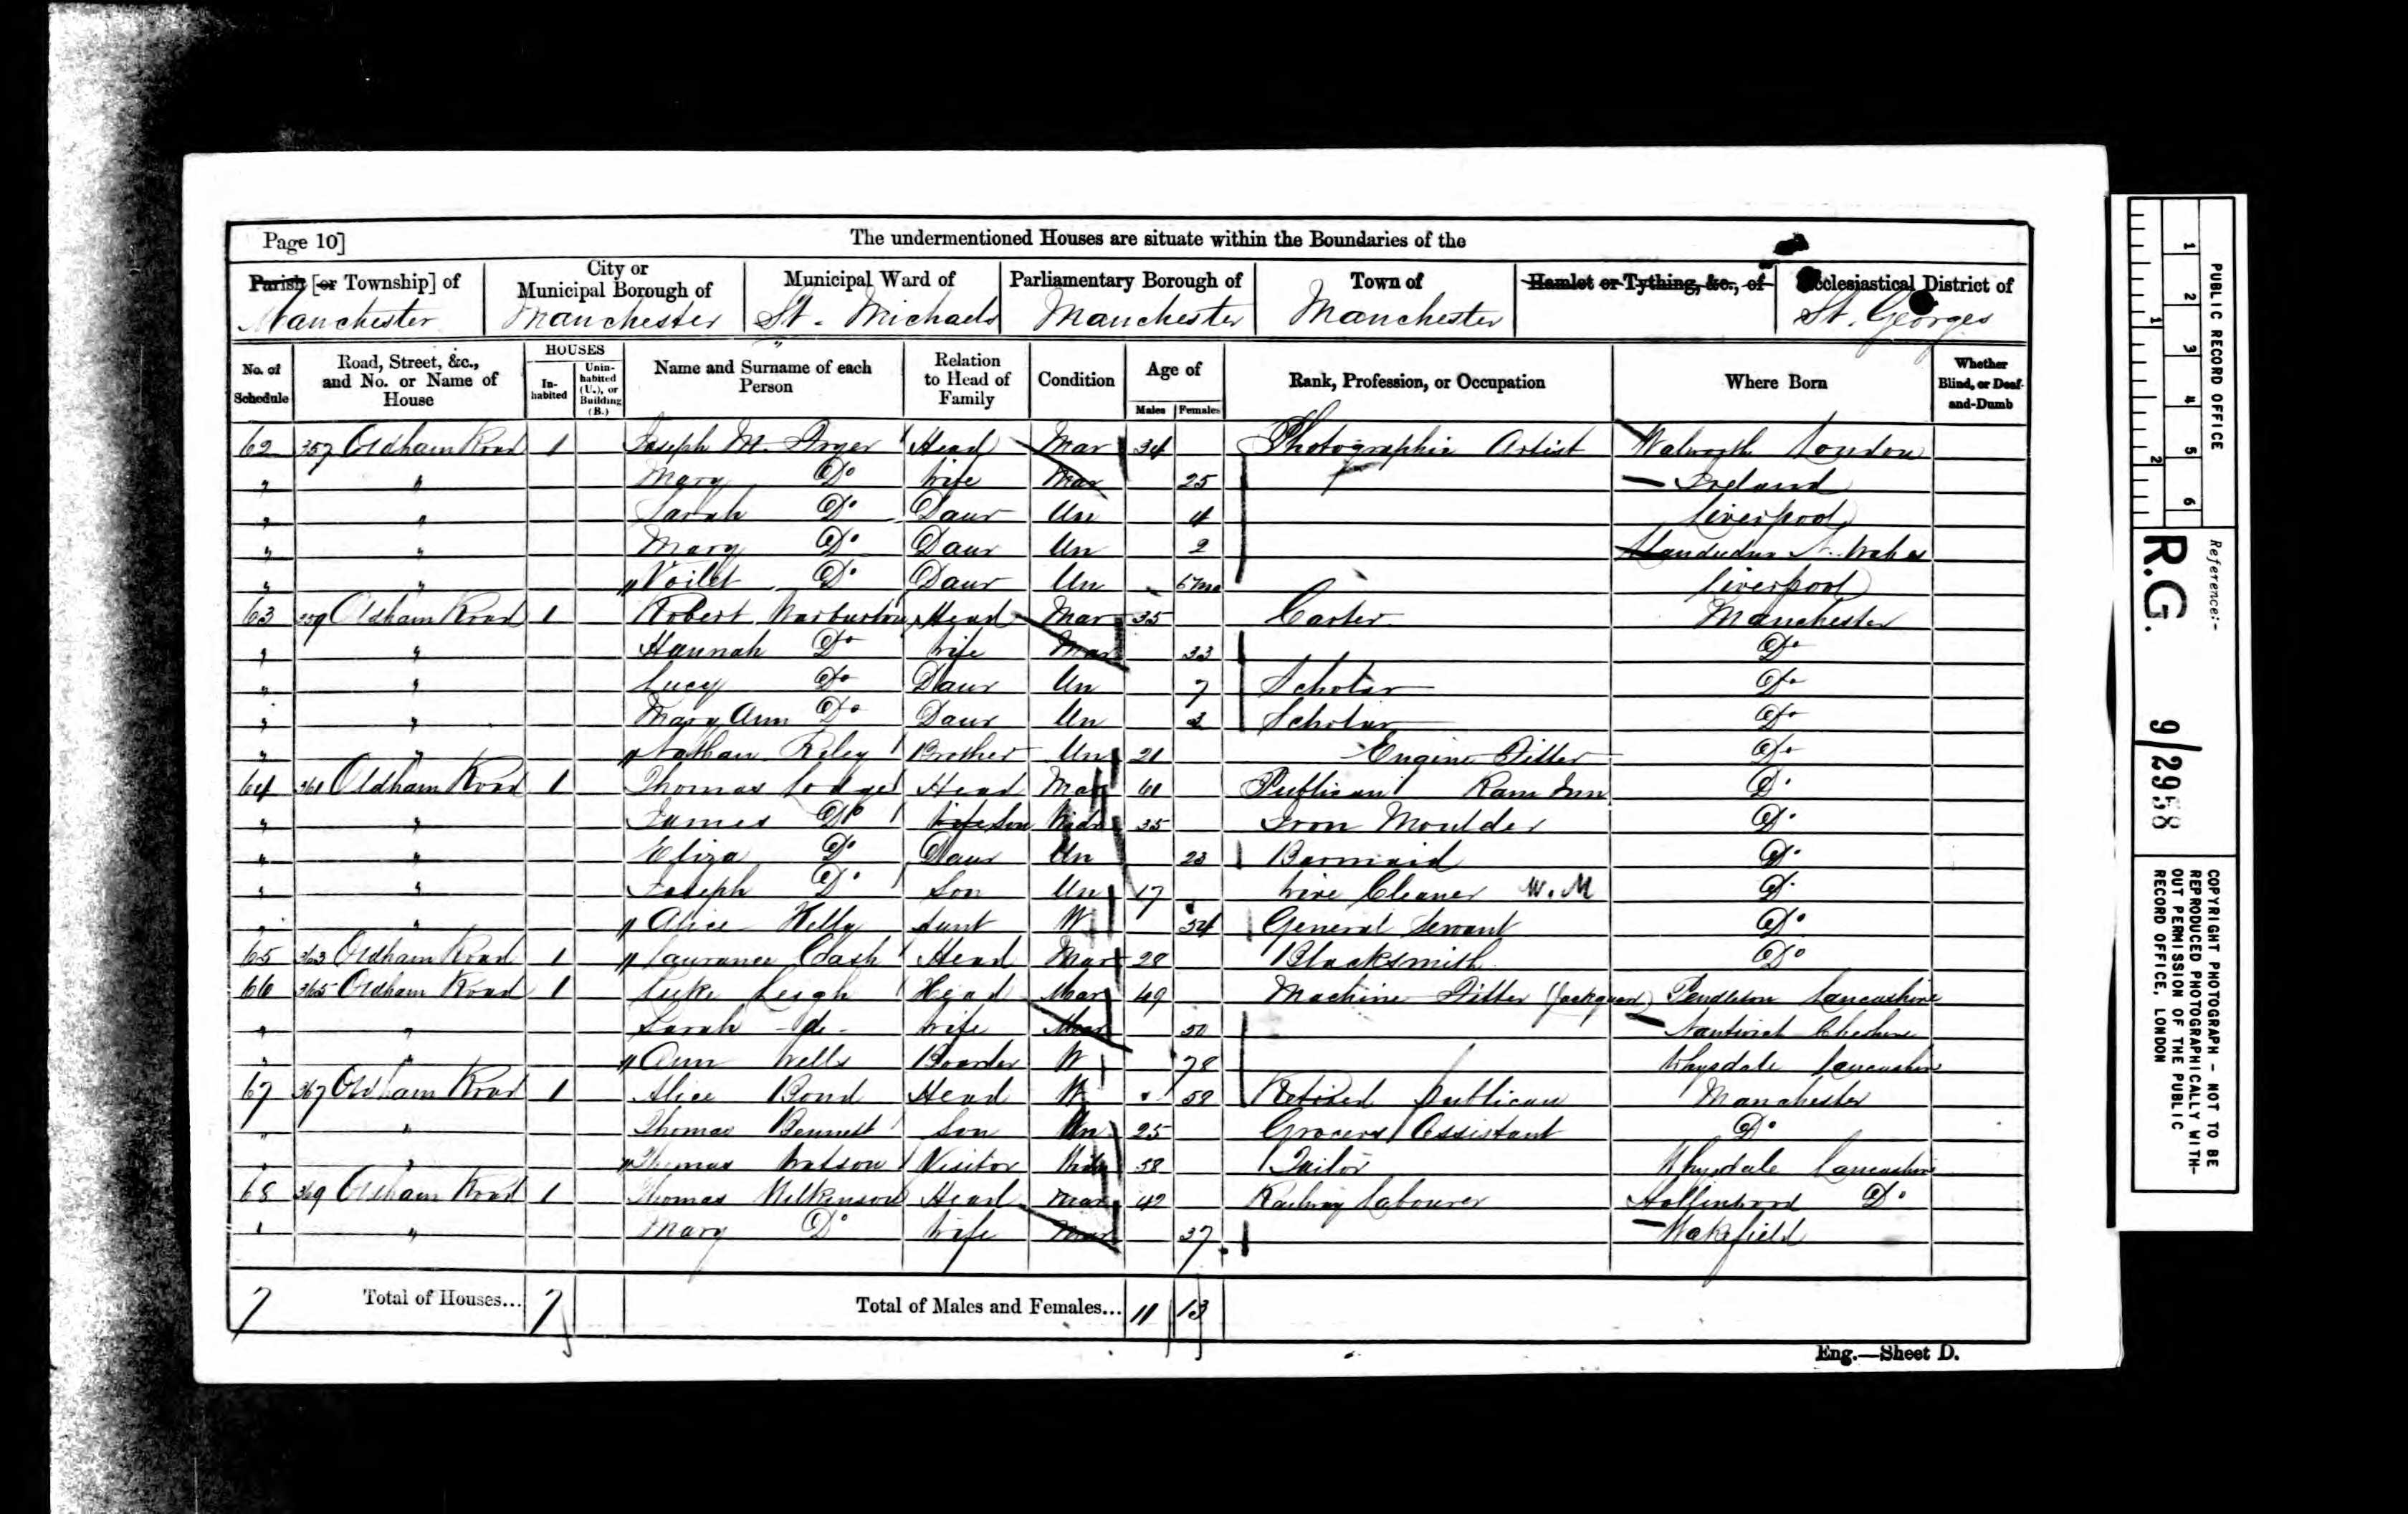 Page 10]
The undermentioned Houses are situate within the Boundaries of the
Parish [or Township] of
City or Municipal Borough of
Municipal Ward of
Parliamentary Borough of
Town of
Hamlet or Tything, &c., of
Ecclesiastical District of
Manchester Manchester St. Michaels Manchester Manchester St. Georges
No. of Schedule
Road, Street, &c., and No. or Name of House
HOUSES
In-habited
Unin-habited (U.), or Building (B.)
Name and Surname of each Person
Relation to Head of Family
Condition
Age of
Males Females
Rank, Profession, or Occupation
Where Born
Whether Blind, or Deaf-and-Dumb
62 357 Oldham Road 1 Joseph M. Head Mar 34 Photographic Artist Walworth London
" " Mary Do Wife Mar 25 Ireland
" " Sarah Do Daur Un 4 Liverpool
" " Mary Do Daur Un 2 N. Wales
" " Voilet Do Daur Un Liverpool
63 359 Oldham Road 1 Robert Warburton Head Mar 35 Carter Manchester
" " Hannah Do Wife Mar 33 Do
" " Lucy Do Daur Un 7 Scholar Do
" " Mary Ann Do Daur Un 3 Scholar Do
" " Nathan Riley Brother Un 21 Engine Fitter Do
64 361 Oldham Road 1 Thomas Lodge Head Mar Publican Ram Inn Do
" " James Do Wife Son Widr 35 Iron Moulder Do
" " Eliza Do Daur Un 23 Barmaid Do
" " Joseph Do Son Un 17 Wire Cleaner W.M Do
" " Alice Aunt W 54 General Servant Do
65 363 Oldham Road 1 Laurance Cash Head Mar 28 Blacksmith Do
66 365 Oldham Road 1 Luke Leigh Head Mar 49 Machine Fitter (Jacquard) Pendleton Lancashire
" " Sarah do Wife Mar 50 Nantwich Cheshire
" " Ann Wells Boarder W 78 Lancashire
67 367 Oldham Road 1 Alice Bond Head W 58 Retired Publican Manchester
" " Thomas Bennett Son Un 25 Grocers Assistant Do
" " Thomas Watson Visitor Widr 58 Tailor Lancashire
68 369 Oldham Road 1 Thomas Wilkinson Head Mar 42 Railway Labourer Hollinwood Do
" " Mary Do Wife Mar 37 Wakefield
7 Total of Houses... 7 Total of Males and Females... 11 13
Eng.—Sheet D.
PUBLIC RECORD OFFICE
1 2 3 4 5 6
1 2
Reference:-
R.G. 9/2958
COPYRIGHT PHOTOGRAPH - NOT TO BE
REPRODUCED PHOTOGRAPHICALLY WITH-
OUT PERMISSION OF THE PUBLIC
RECORD OFFICE, LONDON